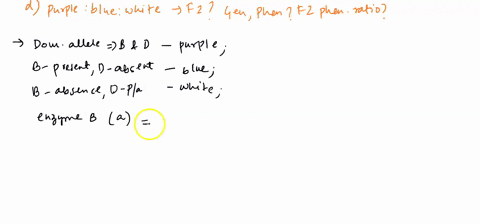 d) purple : blue : white → F2 ? Gen, phen ? F2 phen. ratio?
→ Dom. allele ⇒ B & D — purple;
B- present, D-absent — blue;
B- absence, D-P/a — white;
enzyme B (a) =